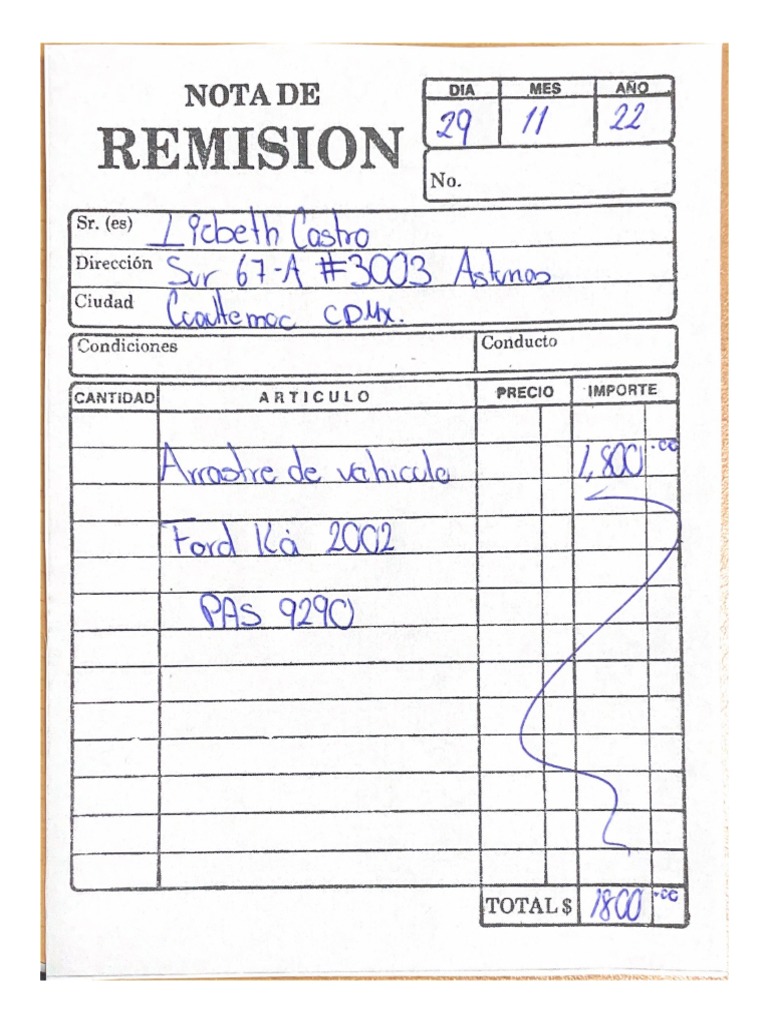 NOTA DE
REMISION
DIA MES AÑO
29 11 22
No.
Sr. (es) Licbeth Castro
Dirección Sur 67-A #3003 Asturias
Ciudad Cuauhtemoc CDMX.
Condiciones Conducto
CANTIDAD ARTICULO PRECIO IMPORTE
Arrastre de vehiculo 1,800.00
Ford Ká 2002
PAS 9290
TOTAL $ 1800.00